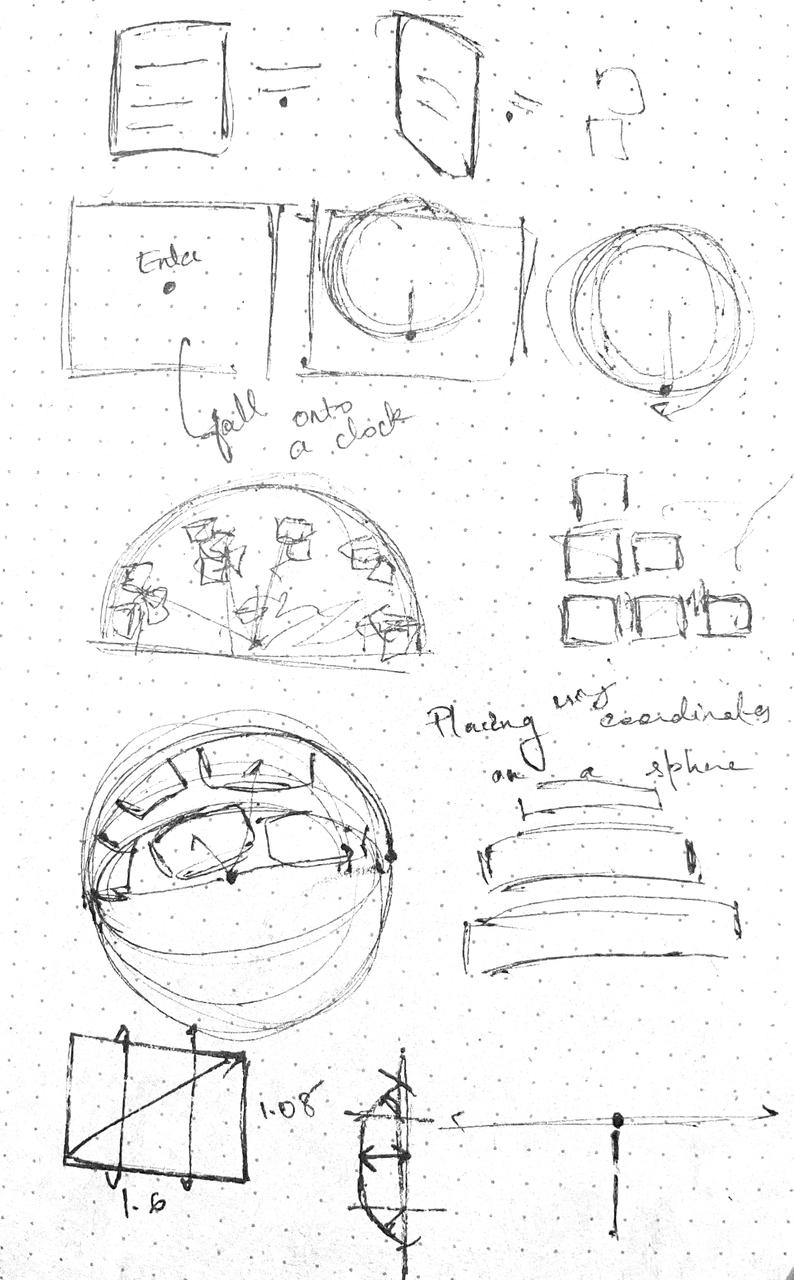 Enter
fall onto
a clock
Placing using coordinates
on a sphere
1.08
1.6